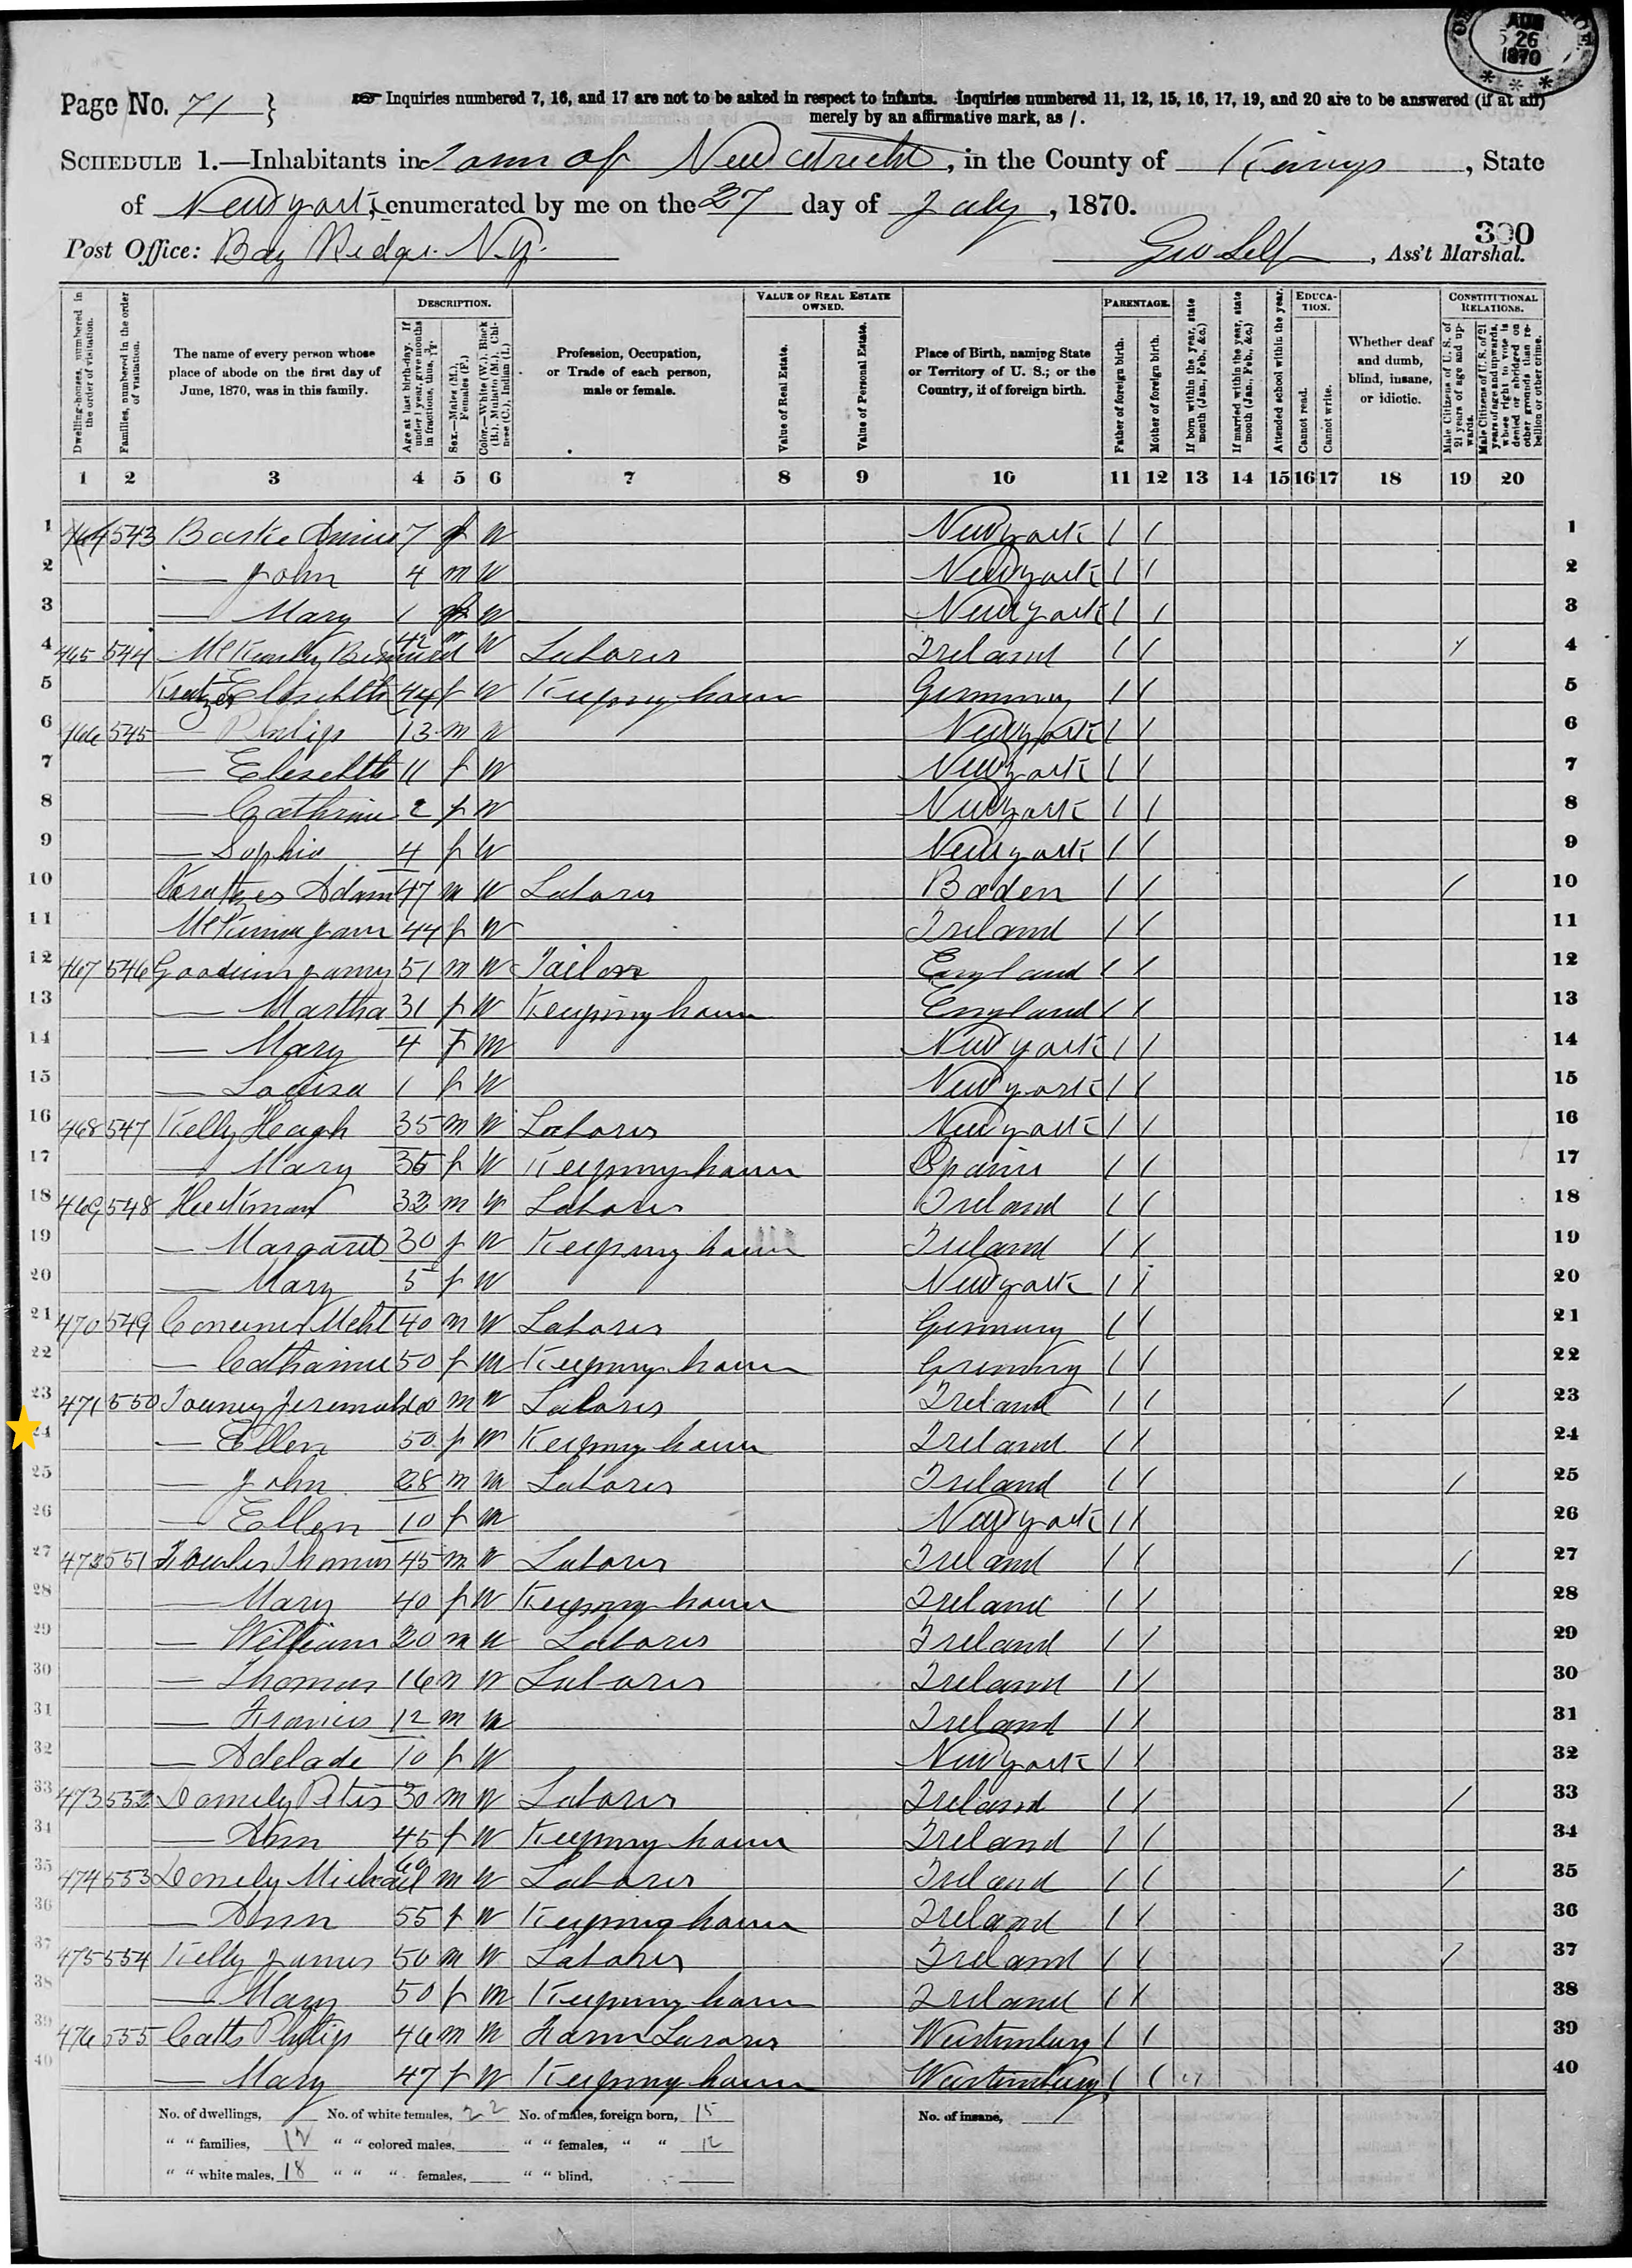 AUG
26
1870
Page No. 71 }
Inquiries numbered 7, 16, and 17 are not to be asked in respect to infants. Inquiries numbered 11, 12, 15, 16, 17, 19, and 20 are to be answered (if at all)
merely by an affirmative mark, as /.
SCHEDULE 1.—Inhabitants in Town of New Utrecht, in the County of Kings, State
of New York, enumerated by me on the 27 day of July, 1870.
390
Post Office: Bay Ridge N.Y. Geo Self, Ass't Marshal.
Dwelling-houses, numbered in the order of visitation.
Families, numbered in the order of visitation.
The name of every person whose place of abode on the first day of June, 1870, was in this family.
DESCRIPTION.
Age at last birth-day. If under 1 year, give months in fractions, thus, 3/12.
Sex.—Males (M.), Females (F.)
Color.—White (W.), Black (B.), Mulatto (M.), Chinese (C.), Indian (I.)
Profession, Occupation, or Trade of each person, male or female.
VALUE OF REAL ESTATE OWNED.
Value of Real Estate.
Value of Personal Estate.
Place of Birth, naming State or Territory of U. S.; or the Country, if of foreign birth.
PARENTAGE.
Father of foreign birth.
Mother of foreign birth.
If born within the year, state month (Jan., Feb., &c.)
If married within the year, state month (Jan., Feb., &c.)
Attended school within the year.
EDUCATION.
Cannot read.
Cannot write.
Whether deaf and dumb, blind, insane, or idiotic.
CONSTITUTIONAL RELATIONS.
Male Citizens of U. S. of 21 years of age and upwards.
Male Citizens of U. S. of 21 years of age and upwards, whose right to vote is denied or abridged on other grounds than rebellion or other crime.
1 2 3 4 5 6 7 8 9 10 11 12 13 14 15 16 17 18 19 20
1 543 7 f W New York / / 1
2 — John 4 m W New York / / 2
3 — Mary 1 f W New York / / 3
4 465 544 42 m W Labores Ireland / / / 4
5 44 f W Keeping house Germany / / 5
6 466 545 — Philip 13 m W New York / / 6
7 — 11 f W New York / / 7
8 — Cathrine 2 f W New York / / 8
9 — Sophia 4 f W New York / / 9
10 Kratzes Adam 47 m W Labores Baden / / / 10
11 44 f W Ireland / / 11
12 467 546 51 m W Tailor England / / 12
13 — Martha 31 f W Keeping house England / / 13
14 — Mary 4 f W New York / / 14
15 — Louisa 1 f W New York / / 15
16 468 547 Kelly Heugh 35 m W Labores New York / / 16
17 — Mary 35 f W Keeping house Spain / / 17
18 469 548 32 m W Labores Ireland / / 18
19 — Margaret 30 f W Keeping house Ireland / / 19
20 — Mary 5 f W New York / / 20
21 470 549 40 m W Labores Germany / / 21
22 — Catharine 50 f W Keeping house Germany / / 22
23 471 550 m W Labores Ireland / / / 23
24 — Ellen 50 f W Keeping house Ireland / / 24
25 — John 28 m W Labores Ireland / / / 25
26 — Ellen 10 f W New York / / 26
27 472 551 Thomas 45 m W Labores Ireland / / / 27
28 — Mary 40 f W Keeping house Ireland / / 28
29 — William 20 m W Labores Ireland / / 29
30 — Thomas 16 m W Labores Ireland / / 30
31 — Francis 12 m W Ireland / / 31
32 — Adelade 10 f W New York / / 32
33 473 552 Donnely Petes 30 m W Labores Ireland / / / 33
34 — Ann 45 f W Keeping house Ireland / / 34
35 474 553 Donely Michael 60 m W Labores Ireland / / / 35
36 — Ann 55 f W Keeping house Ireland / / 36
37 475 554 Kelly James 50 m W Labores Ireland / / / 37
38 — Mary 50 f W Keeping house Ireland / / 38
39 476 555 Catts Philip 46 m W Farm Labores Wurtemburg / / 39
40 — Mary 47 f W Keeping house Wurtemburg / / 40
No. of dwellings, No. of white females, 22 No. of males, foreign born, 15 No. of insane,
" " families, 12 " " colored males, " " females, " " 12
" " white males, 18 " " " females, " " blind,